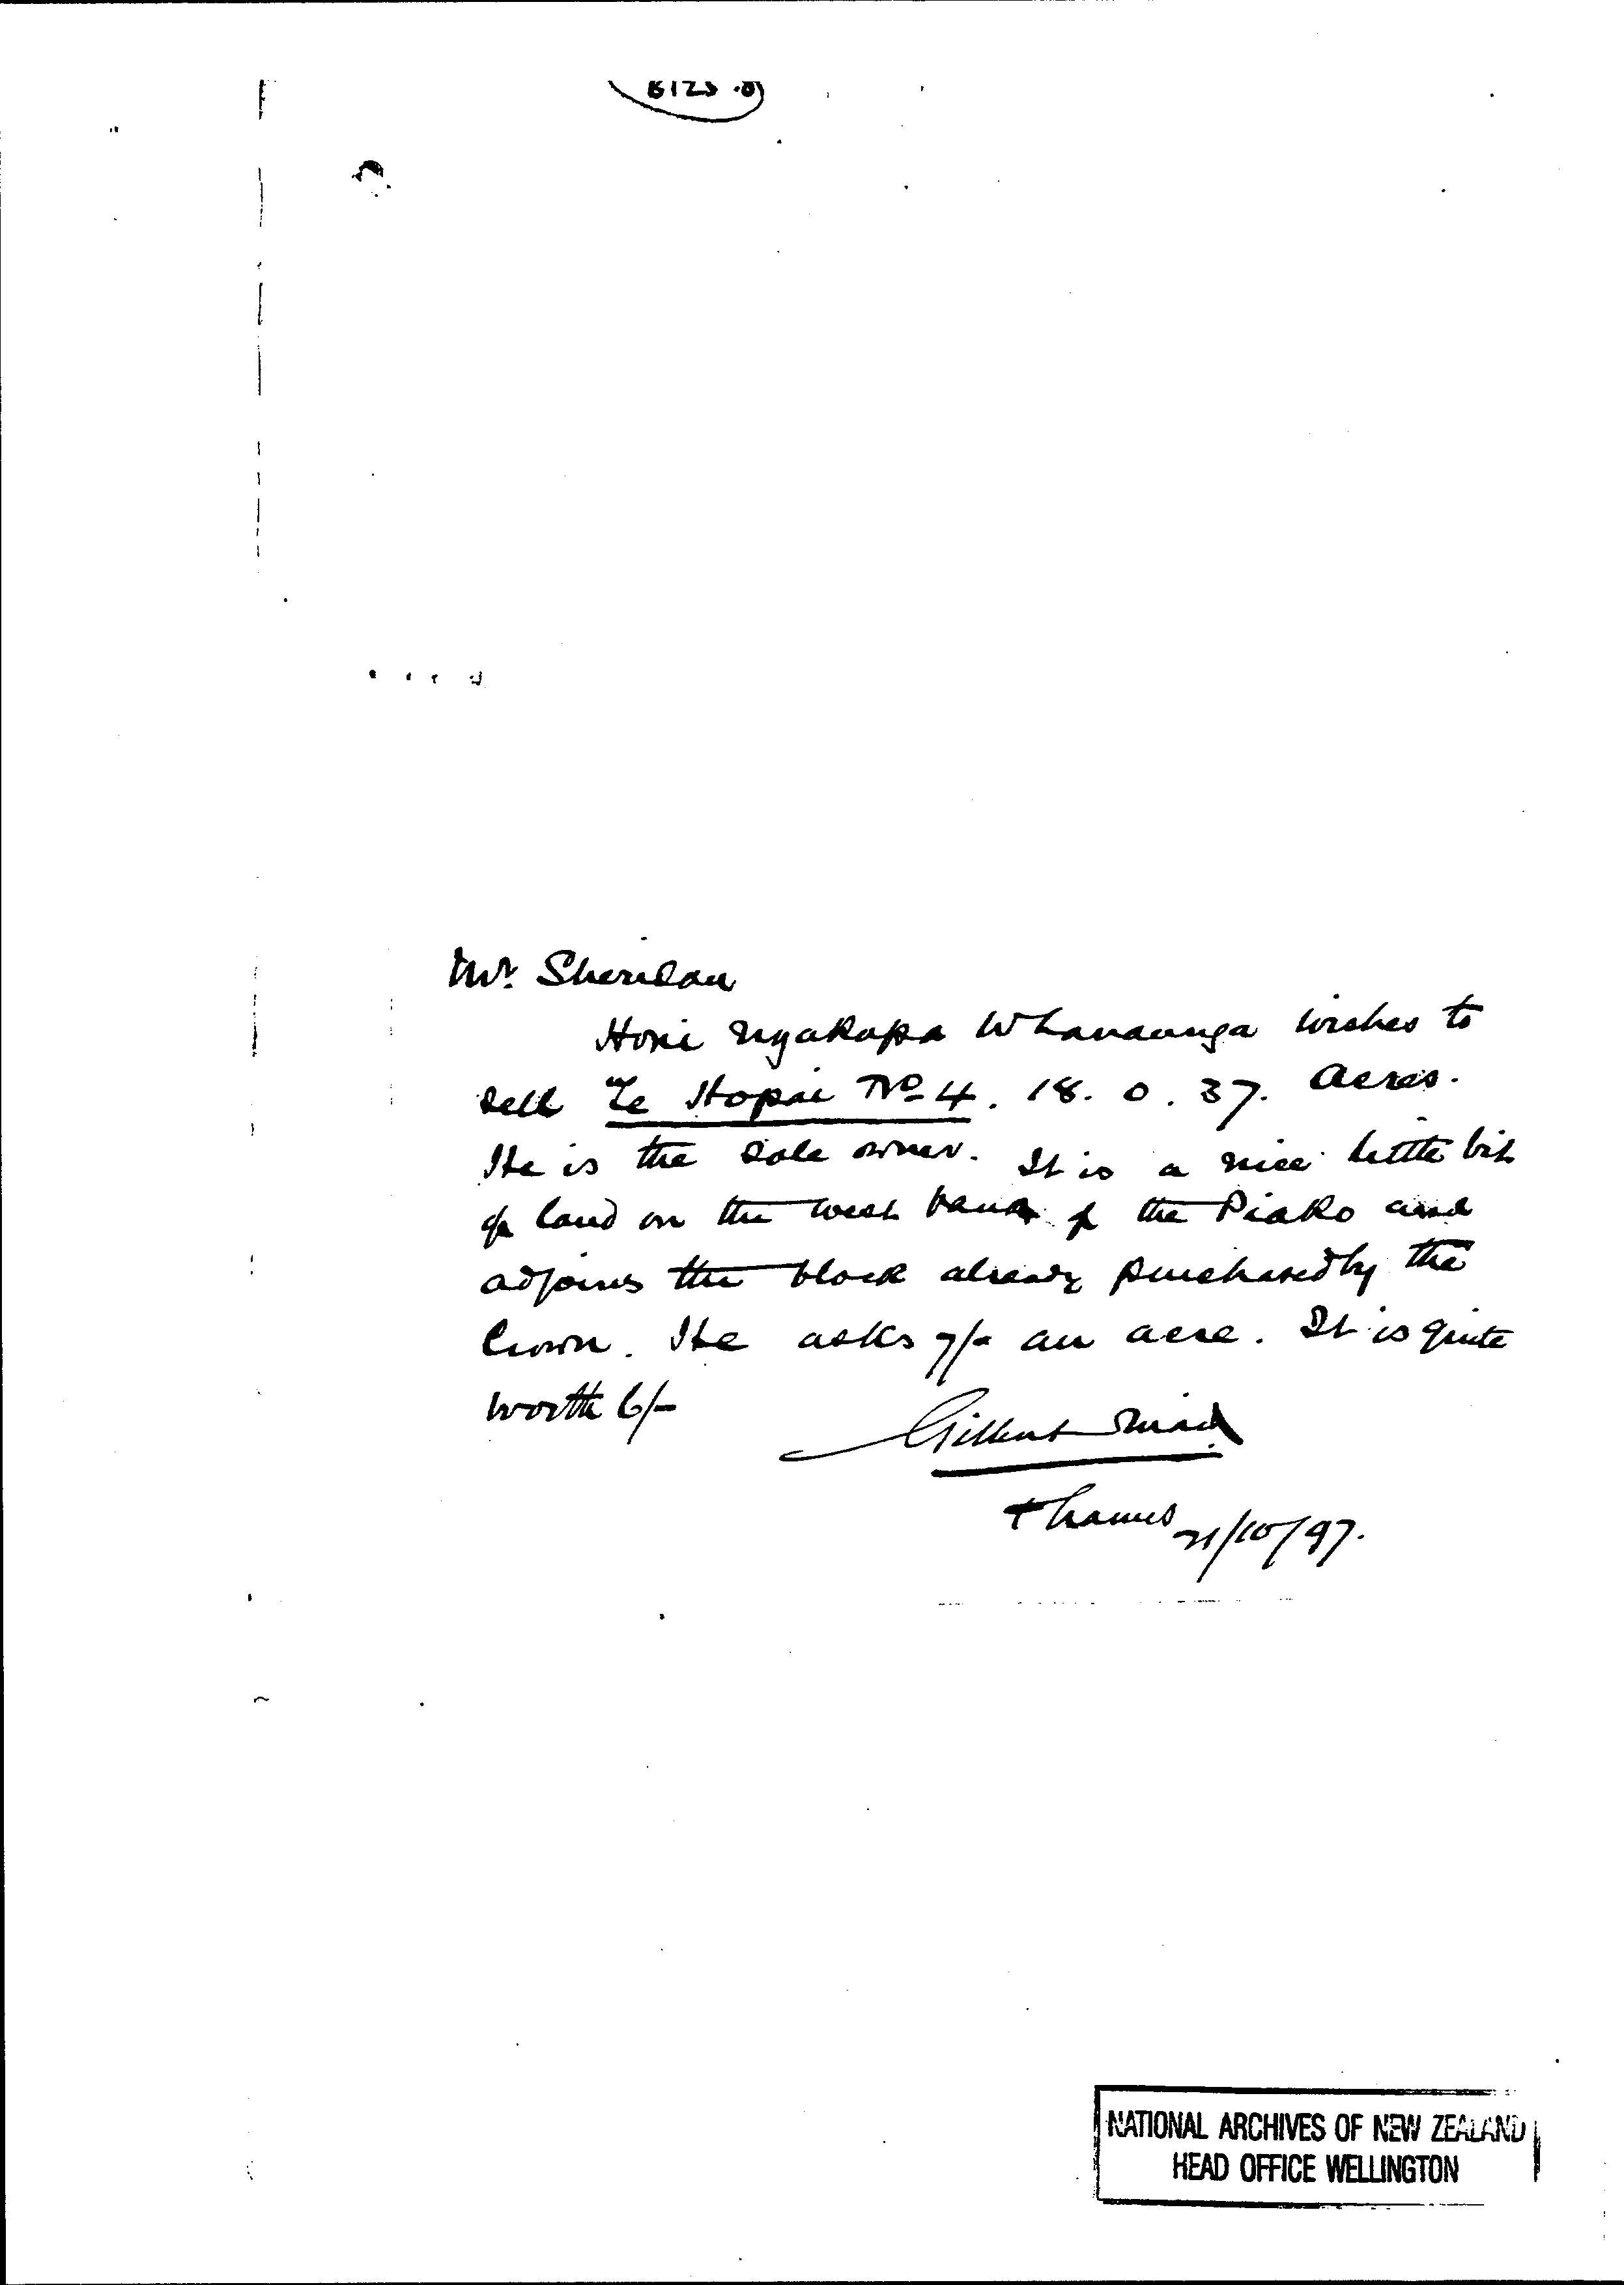 Mr. Sheridan
Hori Ngakapa Whanaunga wishes to
sell Te Hopai No 4. 18. 0. 37. Acres.
He is the sole owner. It is a nice little bit
of land on the west bank of the Piako and
adjoins the block already purchased by the
Crown. He asks 7/- an acre. It is quite
worth 6/-
Gilbert Mair
Thames 21/10/97.
NATIONAL ARCHIVES OF NEW ZEALAND
HEAD OFFICE WELLINGTON